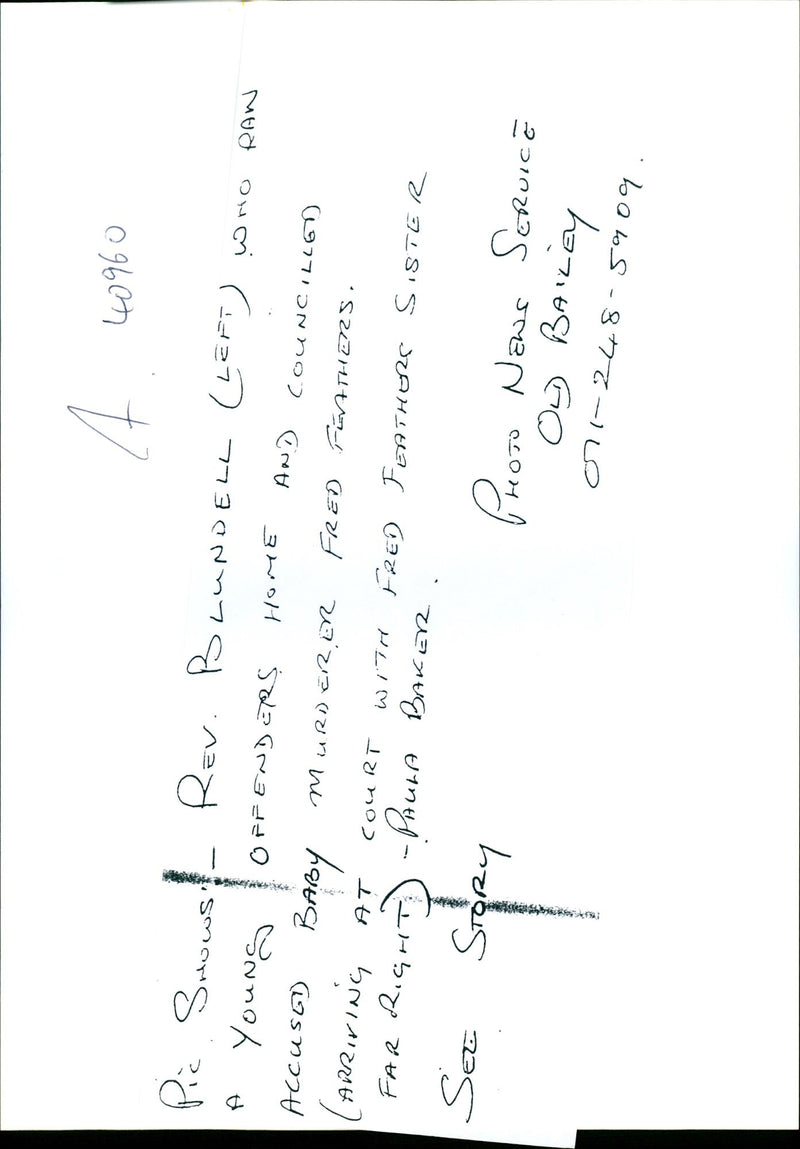 A. 40960
Pic Shows:- Rev. Blundell (left) who ran
a young offenders home and councilled
accused baby murderer Fred Feathers.
(arriving at court with Fred Feathers sister
far right) - Paula Baker.
See Story
Photo News Service
Old Bailey
071-248-5909.